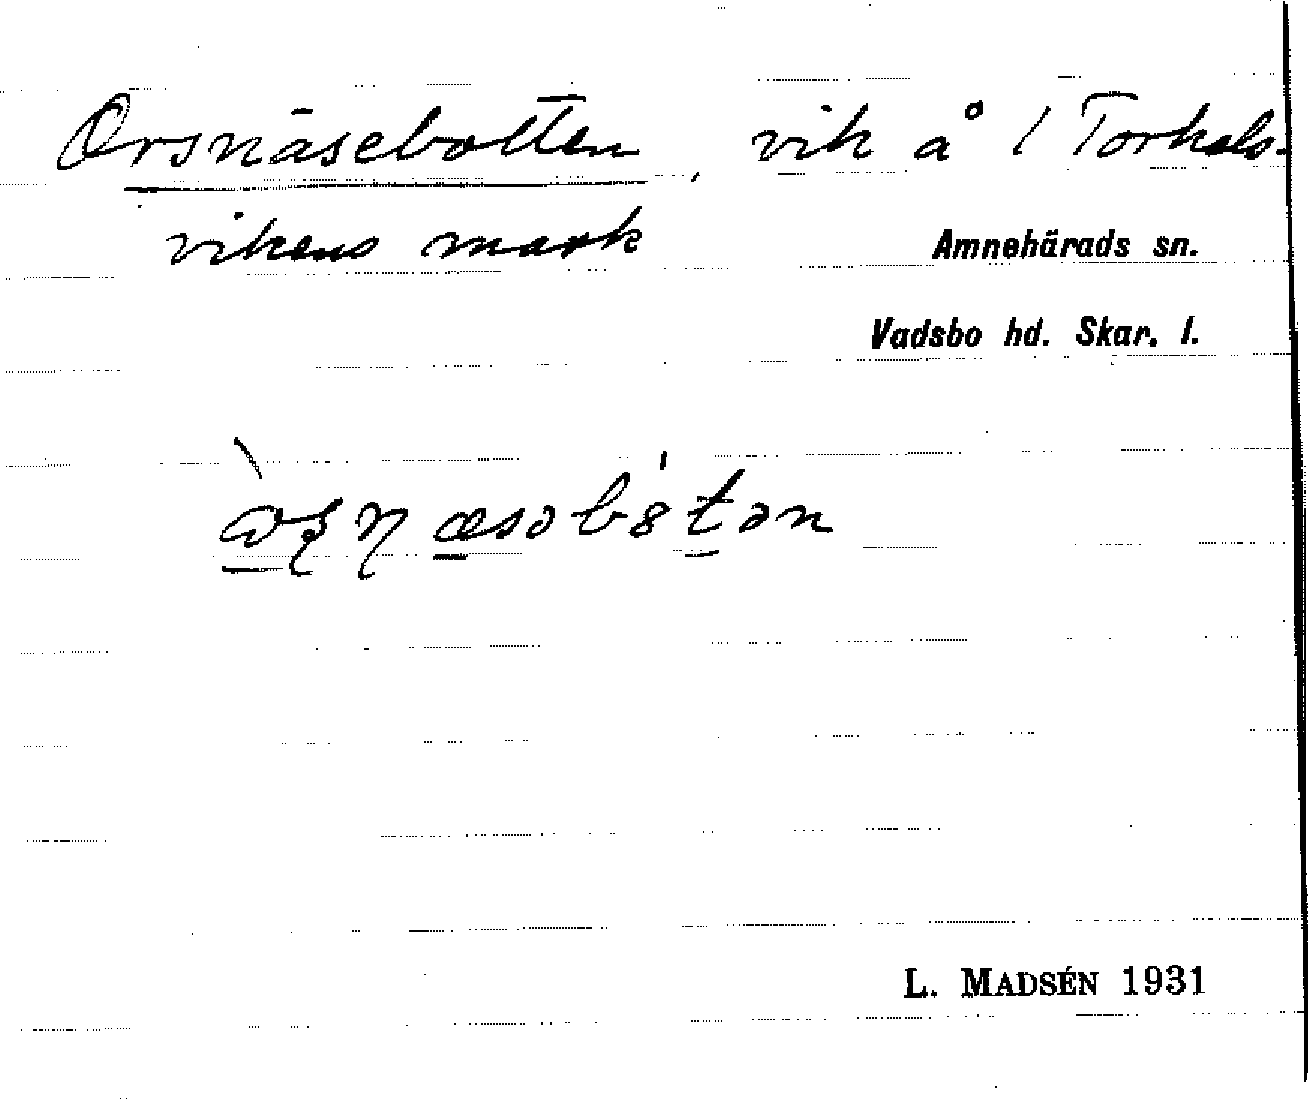 Orsnäsebotten, vik å 1 Torkels-
vikens mark
Amnehärads sn.
Vadsbo hd. Skar. l.
L. MADSÉN 1931